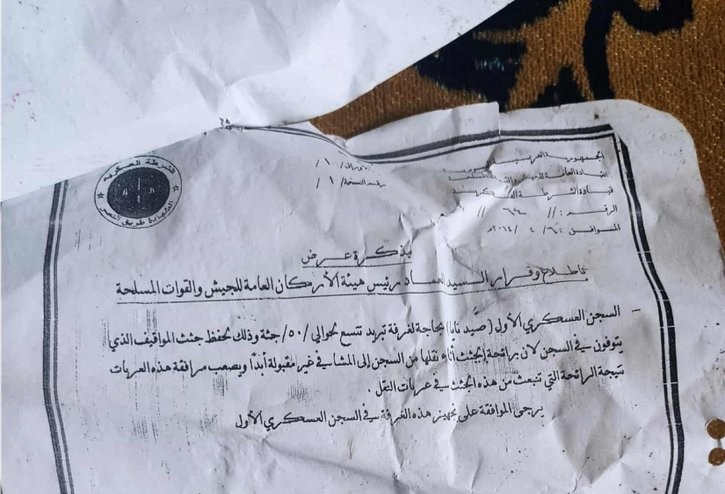 الشرطة العسكرية
القيادة طريق النصر
الأوراق / ١ /
رقم النسخة / ١ /
الجمهورية العربية
القيادة العامة للجيش
قيادة الشرطة العسكرية
الرقم: //
الموافق: ٢٠١٤م
مذكرة عرض
لاطلاع وقرار السيد العماد رئيس هيئة الأركان العامة للجيش والقوات المسلحة
- السجن العسكري الأول (صيدنايا) بحاجة لغرفة تبريد تتسع لحوالي /٥٠/ جثة وذلك لحفظ جثث المواقيف الذي
يتوفون في السجن لأن رائحة الجثث أثناء نقلها من السجن إلى المشافي غير مقبولة أبداً ويصعب مرافقة هذه العربات
نتيجة الرائحة التي تنبعث من هذه الجثث في عربات النقل.
يرجى الموافقة على تجهيز هذه الغرفة في السجن العسكري الأول